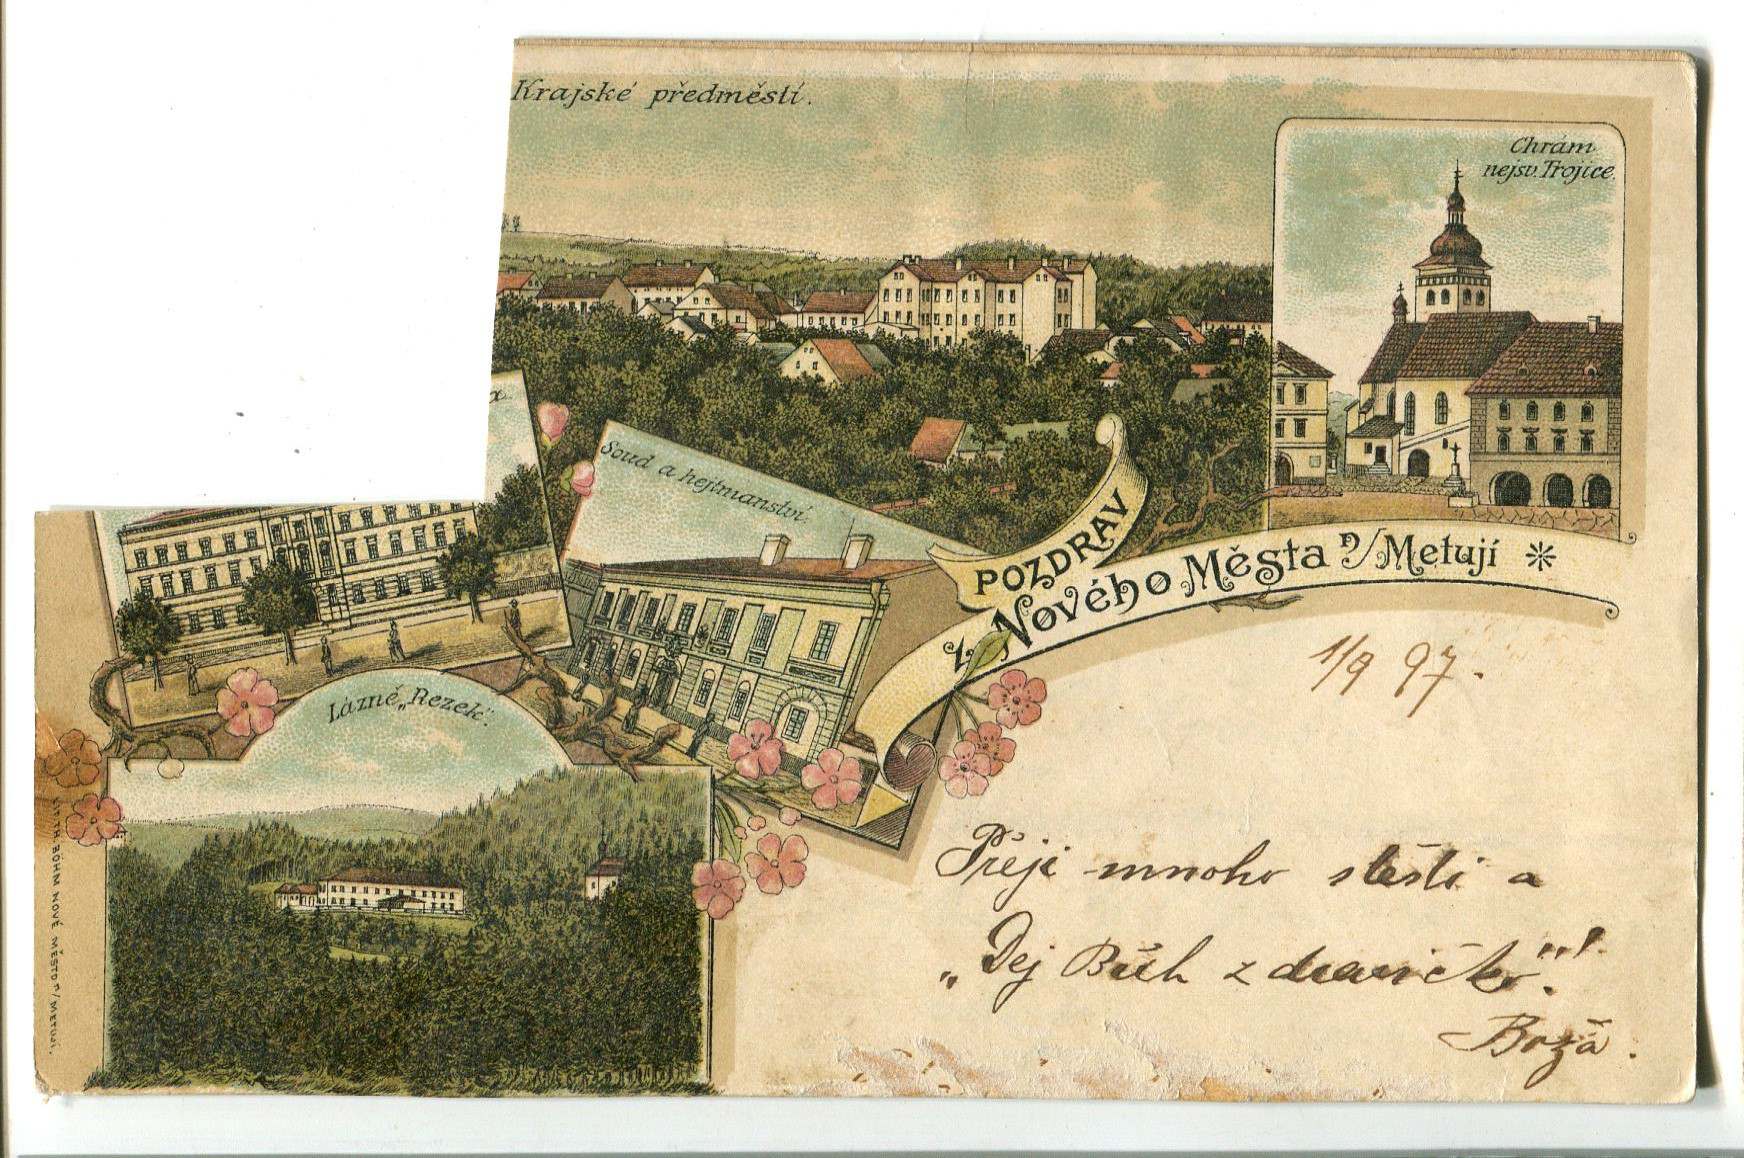 Krajské předměstí.
Chrám
nejsv. Trojice.
Soud a hejtmanství.
POZDRAV
z Nového Města n/Metují
Lázně „Rezek“.
1/9 97.
Přeji mnoho štěstí a
„Dej Bůh zdravíčko“!
Boža.
BÖHM NOVÉ MĚSTO n/METUJÍ.